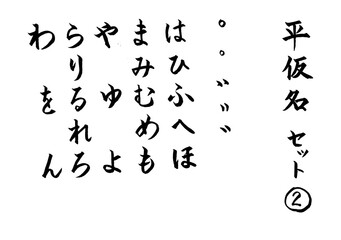 平仮名 セット②
゜゜゛゛゛
はひふへほ
まみむめも
や ゆ よ
らりるれろ
わ を ん